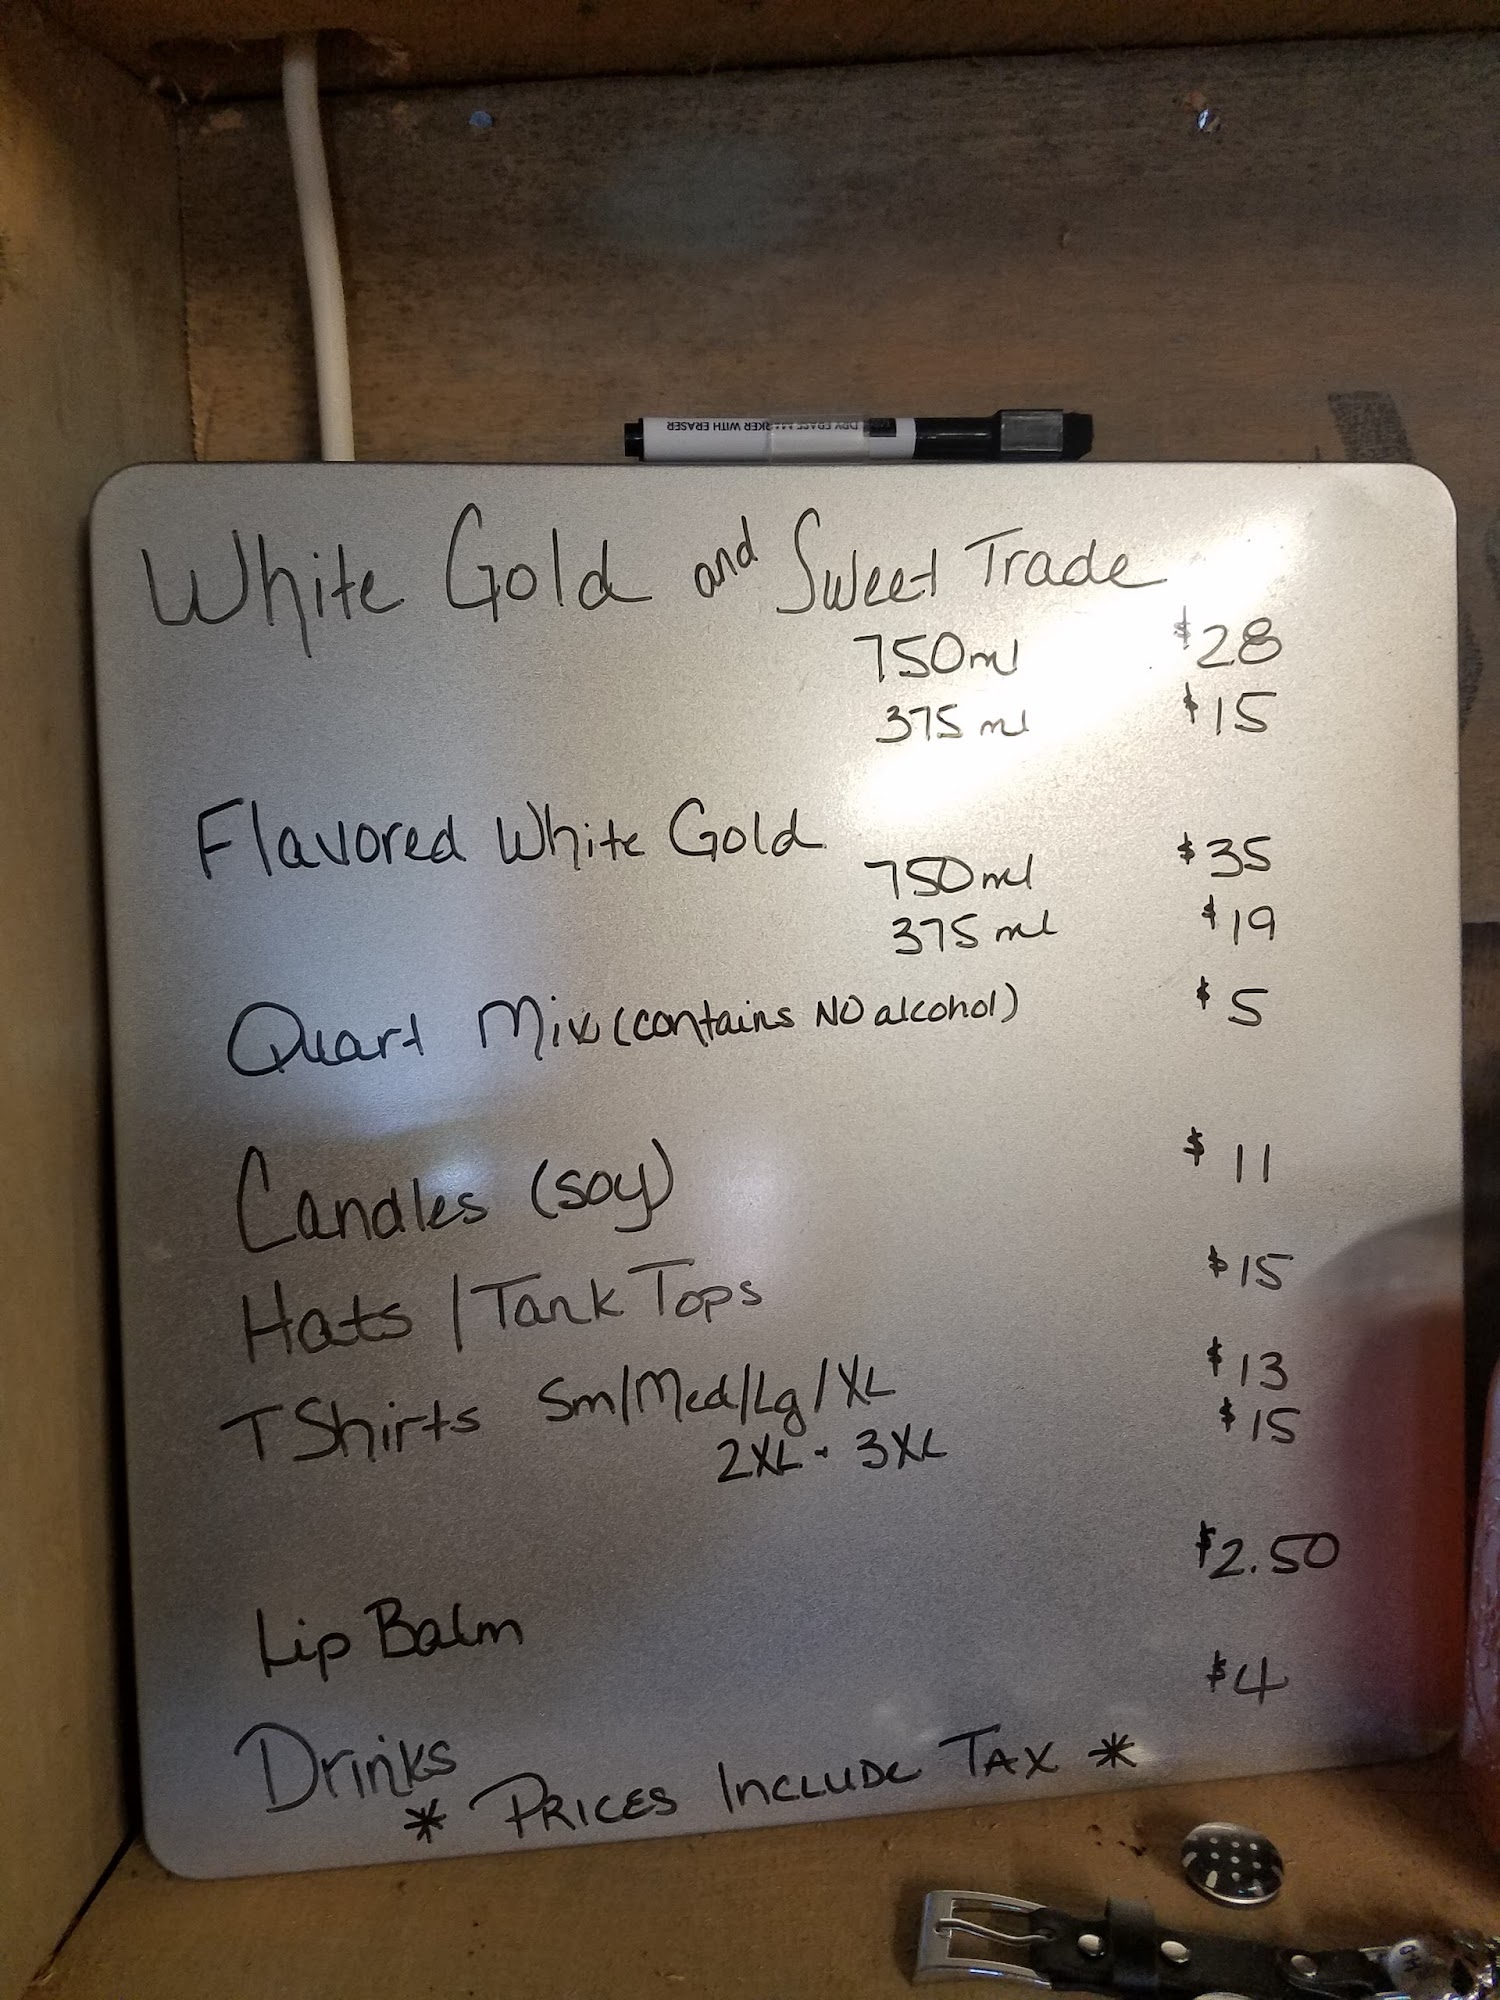 DRY ERASE MARKER WITH ERASER
White Gold and Sweet Trade
750ml $28
375ml $15
Flavored White Gold
750ml $35
375ml $19
Quart Mix (contains NO alcohol) $5
Candles (soy) $11
Hats / Tank Tops $15
T Shirts Sm/Med/Lg/XL $13
2XL - 3XL $15
Lip Balm $2.50
Drinks $4
* PRICES INCLUDE TAX *